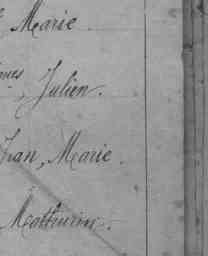 Marie
Julien.
Jean, Marie.
Mathurin.